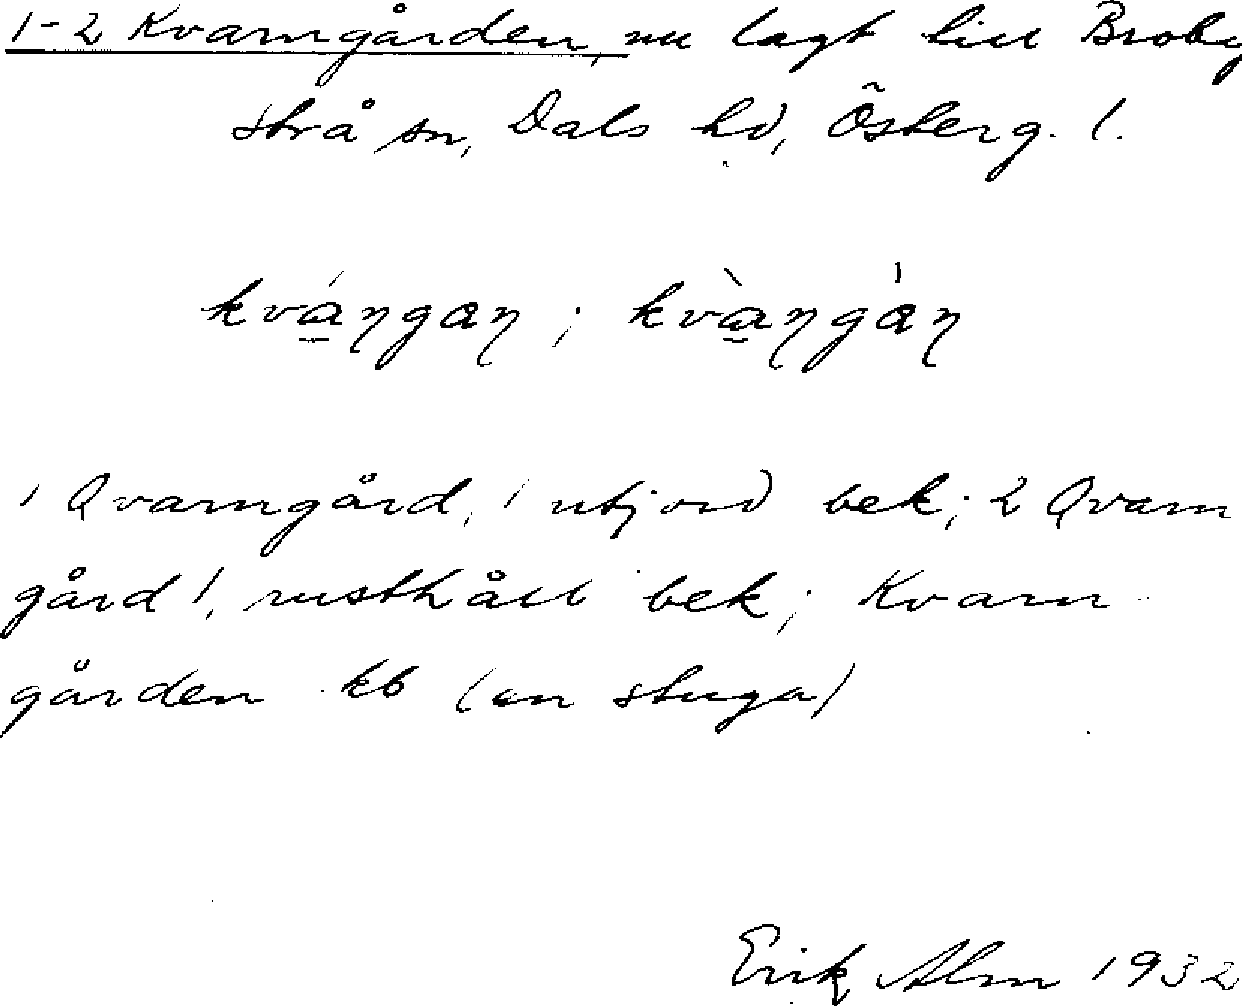 1-2 Kvarngården, nu lagt till Broby
Strå sn, Dals hd, Österg. l.
kvá̲ŋgaŋ; kvà̲ŋgàŋ
1 Qvarngård, 1 utjord bek; 2 Qvarn
gård 1, rusthåll bek; Kvarn-
gården kb (en stuga)
Erik Alm 1932